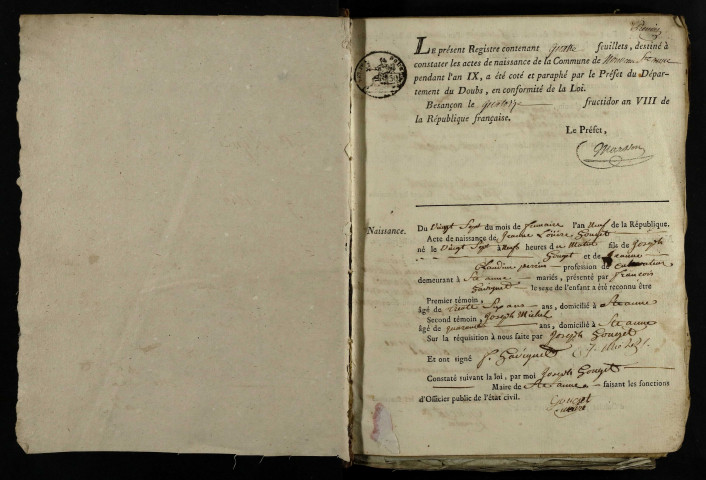 LE présent Registre contenant quatre feuillets, destiné à
constater les actes de naissance de la Commune de
pendant l'an IX, a été coté et paraphé par le Préfet du Dépar-
tement du Doubs, en conformité de la Loi.
Besançon le quatorze fructidor an VIII de
la République française.
Le Préfet,
Marson
Naissance. Du Vingt Sept du mois de frimaire l'an neuf de la République.
Acte de naissance de Jeanne Louise Gouget
né le Vingt Sept à neuf heures du Matin fils de Joseph
Gouget et de Jeanne
Claudine perrin profession de cultivateur
demeurant à Ste anne mariés, présenté par François
le sexe de l'enfant a été reconnu être
Premier témoin,
âgé de trente Six ans ans, domicilié à Ste anne
Second témoin, Joseph Michel
âgé de quarante ans, domicilié à Ste anne
Sur la réquisition à nous faite par Joseph Gouget
Et ont signé
Constaté suivant la loi, par moi Joseph Gouget
Maire de Ste anne faisant les fonctions
d'Officier public de l'état civil. Gouget
maire